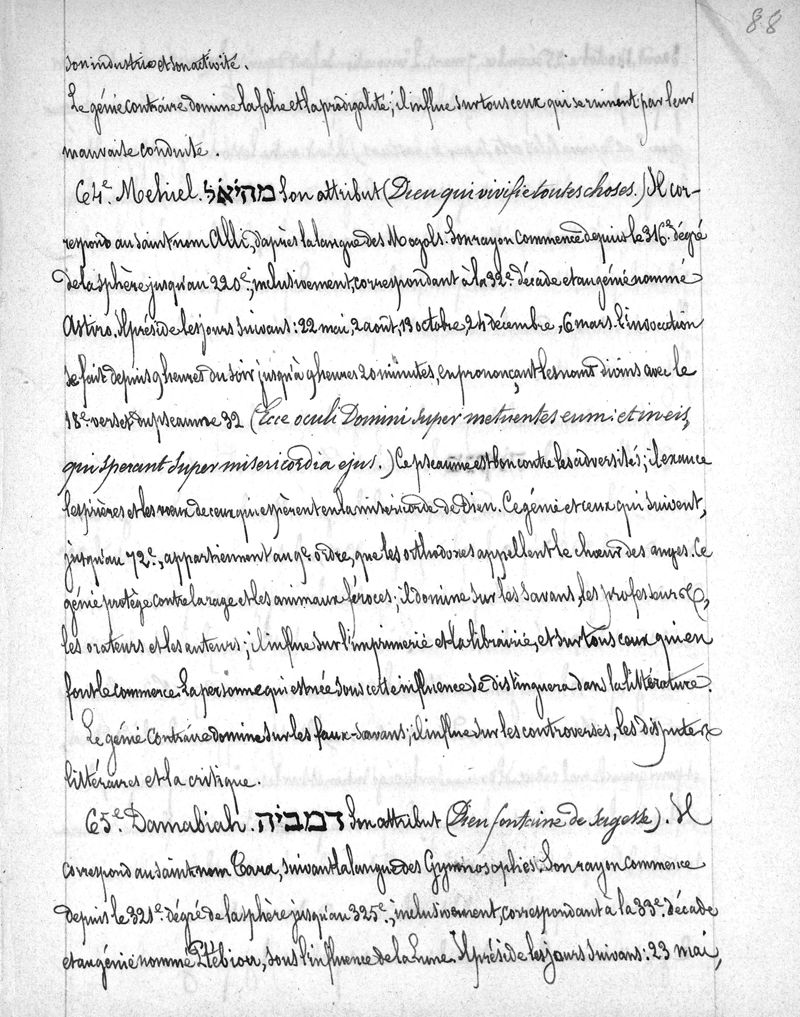 88
son industrie et son activité.
Le génie contraire domine la folie et la prodigalité; il influe sur tous ceux qui se ruinent par leur
mauvaise conduite.
64.e Mehiel. מהיאל Son attribut (Dieu qui vivifie toutes choses.) Il cor-
respond au saint nom Alli, d'après la langue des Mogols. Son rayon commence depuis le 316.e dégré
de la sphère jusqu'au 220e, inclusivement, correspondant à la 32e décade et au génie nommé
Astiro. Il préside les jours suivans: 22 mai, 2 août, 13 octobre, 24 décembre, 6 mars. L'invocation
se fait depuis 9 heures du soir jusqu'à 9 heures 20 minutes, en prononçant les noms divins avec le
18e verset du pseaume 32 (Ecce oculi Domini super metuentes eum: et in eis,
qui sperant super misericordia ejus.) Ce pseaume est bon contre les adversités; il exauce
les prières et les vœux de ceux qui espèrent en la miséricorde de Dieu. Ce génie et ceux qui suivent,
jusqu'au 72e, appartiennent au 9e ordre, que les orthodoxes appellent le chœur des anges. Ce
génie protège contre la rage et les animaux féroces; il domine sur les savans, les professeurs,
les orateurs et les auteurs; il influe sur l'imprimerie et la librairie, et sur tous ceux qui en
font le commerce. La personne qui est née sous cette influence se distinguera dans la littérature.
Le génie contraire domine sur les faux-savans; il influe sur les controverses, les disputes
littéraires et la critique.
65.e Damabiah. דמביה Son attribut (Dieu fontaine de sagesse). Il
correspond au saint nom Tara, suivant la langue des Gymnosophies. Son rayon commence
depuis le 321e dégré de la sphère jusqu'au 325e, inclusivement, correspondant à la 33e décade
et au génie nommé Ptébiou, sous l'influence de la Lune. Il préside les jours suivans: 23 mai,